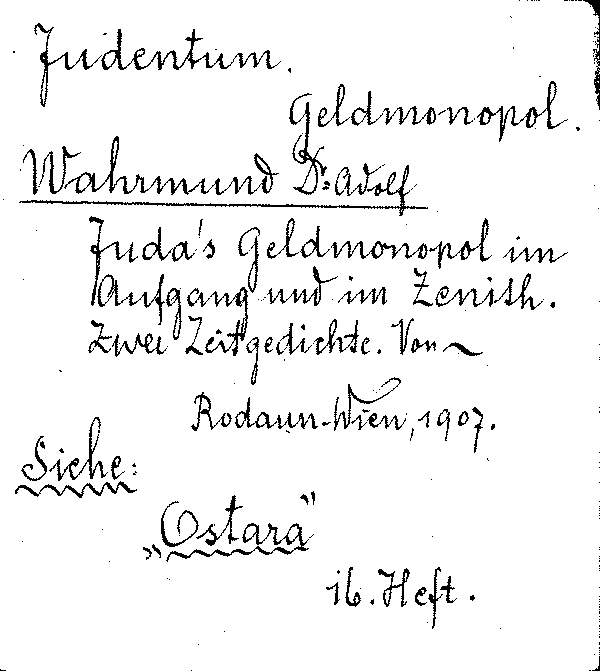 Judentum.
Geldmonopol.
Wahrmund Dr. Adolf
Juda's Geldmonopol im
Aufgang und im Zenith.
Zwei Zeitgedichte. Von ~
Rodaun-Wien, 1907.
Siehe:
„Ostara"
16. Heft.